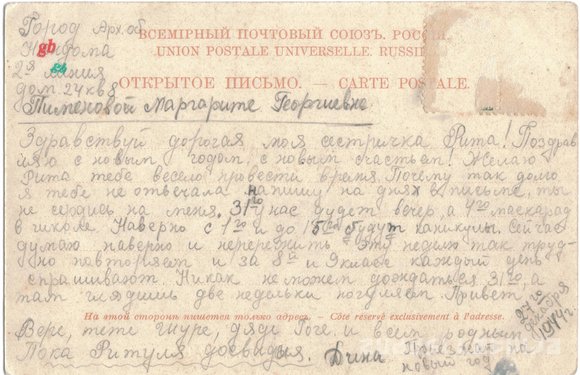 Город Арх. об
ВСЕМІРНЫЙ ПОЧТОВЫЙ СОЮЗЪ. РОССІ
UNION POSTALE UNIVERSELLE. RUSSIE
2я линия
ОТКРЫТОЕ ПИСЬМО. — CARTE POSTALE.
дом 24 кв 8
Пименовой Маргарите Георгиевне
Здравствуй дорогая моя сестричка Рита! Поздрав
ляю с новым годом, с новым счастьем! Желаю
Рита тебе весело провести время. Почему так долго
я тебе не отвечала напишу на днях в письме, ты
не сердись на меня. 31го у нас будет вечер, а 4го маскарад
в школе. Наверно с 1го и до 15ое будут каникулы. Сейчас
думаю наверно и не пережить эту неделю так труд
но повторяем и за 8й и 9 класс каждый день
спрашивают. Никак не можем дождаться 31го, а
там глядишь две недельки погуляем. Привет
На этой сторонѣ пишется только адресъ. — Côté réservé exclusivement à l'adresse.
Вере, тете Шуре, дяди Гоге. и всем родным
Пока Ритуля досвиданья. Дина.
27го
декабря
1944 г.
новый год